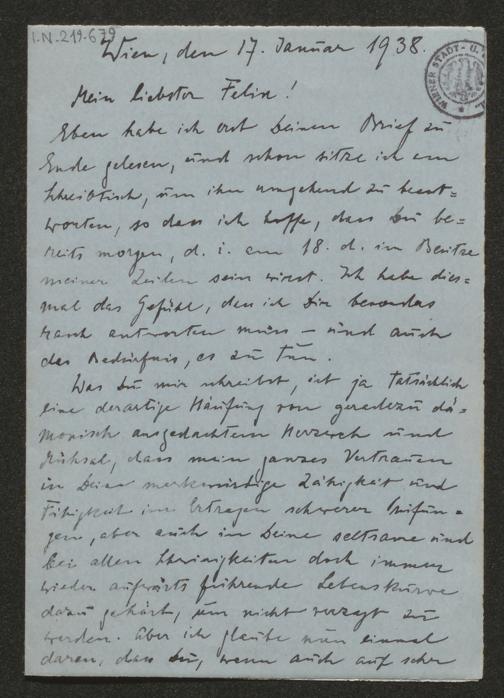 I.N. 219.679
Wien, den 17. Januar 1938.
WIENER STADT- U.
Mein liebster Felix!
Eben habe ich erst Deinen Brief zu
Ende gelesen, und schon sitze ich am
Schreibtisch, um ihn umgehend zu beant=
worten, so dass ich hoffe, dass Du be=
reits morgen, d. i. am 18. d. im Besitze
meiner Zeilen sein wirst. Ich habe dies=
mal das Gefühl, dass ich Dir besonders
rasch antworten muss – und auch
das Bedürfnis, es zu tun.
Was Du mir schreibst, ist ja tatsächlich
eine derartige Häufung von geradezu dä=
monisch ausgedachtem Herzweh und
Mühsal, dass mein ganzes Vertrauen
in Deine merkwürdige Zähigkeit und
Fähigkeit im Ertragen schwerer Prüfun=
gen, aber auch in Deine seltsame und
bei allen Schwierigkeiten doch immer
wieder aufwärts führende Lebenskurve
dazu gehört, um nicht verzagt zu
werden. Aber ich glaube nun einmal
daran, dass Du, wenn auch auf sehr